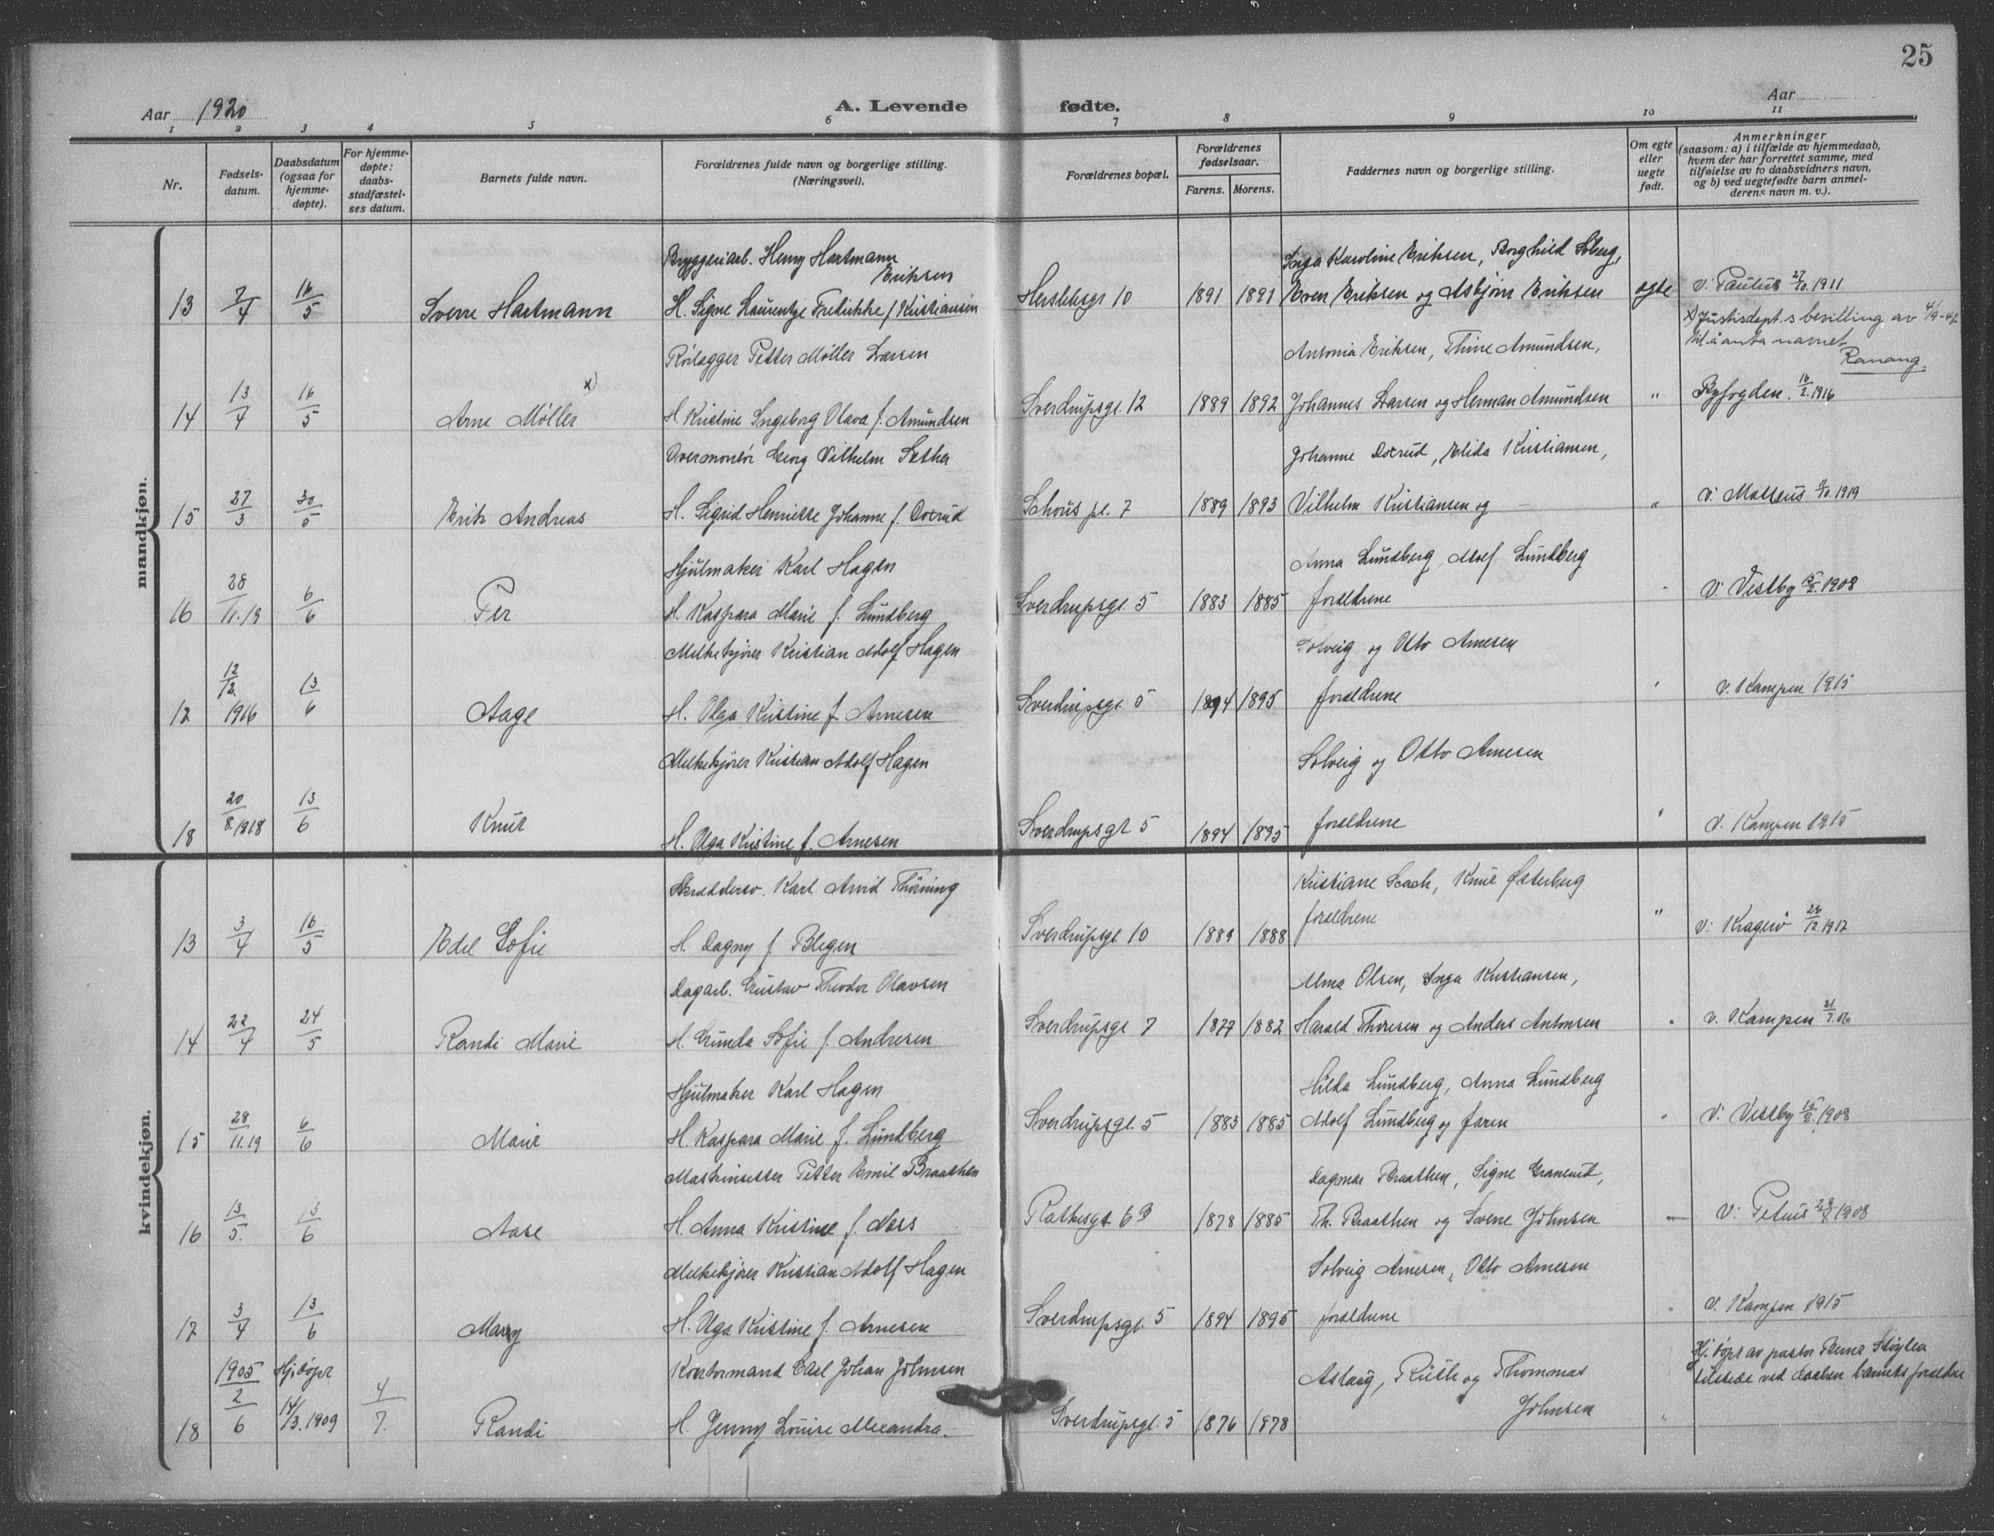 25
Aar 1920 A. Levende fødte. Aar
1 2 3 4 5 6 7 8 9 10 11
Nr.
Fødsels-
datum.
Daabsdatum
(ogsaa for
hjemme-
døpte).
For hjemme-
døpte:
daabs-
stadfæstel-
ses datum.
Barnets fulde navn.
Forældrenes fulde navn og borgerlige stilling.
(Næringsvei).
Forældrenes bopæl.
Forældrenes
fødselsaar.
Farens. Morens.
Faddernes navn og borgerlige stilling.
Om egte
eller
uegte
født.
Anmerkninger
(saasom: a) i tilfælde av hjemmedaab,
hvem der har forrettet samme, med
tilføielse av to daabsvidners navn,
og b) ved uegtefødte barn anmel-
derens navn m. v.).
mandkjøn.
Bryggeriarb. Henry Hartmann Inga Karoline Eriksen, Borghild Soberg,
Eriksen
13 7/4 16/5 Sverre Hartmann H. Signe Laurentze Fredrikke f. Kristiansen Herslebsgt 10 1891 1891 Even Eriksen og Asbjørn Eriksen egte v. Paulus 27/10 1911
x) Justisdept.s bevilling av 4/9-42
til å anta navnet
Ranang.
Rørlegger Petter Møller Larsen Antonia Eriksen, Thine Amundsen,
14 13/4 16/5 Arne Møller x) H. Kristine Ingeborg Olava f. Amundsen Sverdrupsgt 12 1889 1892 Johannes Larsen og Herman Amundsen " Byfogden. 16/2. 1916
Overmontør Georg Vilhelm Sæther Johanne Dorrud, Elida Kristiansen,
15 27/3 30/5 Erik Andreas H. Sigrid Henriette Johanne f. Dorrud Schous pl. 7 1889 1893 Vilhelm Kristiansen og " v. Matteus 1919
Hjulmaker Karl Hagen Anna Lundberg, Adolf Lundberg
16 28/11.19 6/6 Per H. Kaspara Marie f. Lundberg Sverdrupsgt. 5 1883 1885 forældrene " v. Vestby 15/2. 1908
Melkekjører Kristian Adolf Hagen Solveig og Otto Arnesen
17 12/12. 1916 13/6 Aage H. Olga Kristine f. Arnesen Sverdrupsgt 5 1894 1895 forældrene " v. Kampen 1915
Melkekjører Kristian Adolf Hagen Solveig og Otto Arnesen
18 20/8. 1918 13/6 Knut H. Olga Kristine f. Arnesen Sverdrupsgt 5 1894 1895 forældrene " v. Kampen 1915
kvindekjøn.
Skræddersv. Karl Arvid Thörning Kristiane Bach, Knut Østerberg
13 3/4 16/5 Edel Sofie H. Dagny f. Blegen Sverdrupsgt 10 1889 1888 forældrene " v: Kragerø 26/12 1917
Dagarb. Gustav Theodor Olavsen Alma Olsen, Inga Kristiansen,
14 22/4 24/5 Randi Marie H. Gunda Sofie f. Andresen Sverdrupsgt 7 1877 1882 Harald Thoresen og Anders Antonsen " v. Kampen 31/7.06
Hjulmaker Karl Hagen Hilda Lundberg, Anna Lundberg
15 28/11.19 6/6 Marie H. Kaspara Marie f. Lundberg Sverdrupsgt. 5 1883 1885 Adolf Lundberg og faren " v: Vestby 15/2. 1908
Maskinsetter Petter Emil Braathen Dagmar Braathen, Signe Granerud,
16 13/5. 13/6 Aase H. Anna Kristine f. Næss Rathkesgt 6 B 1878 1885 Th. Braathen og Sverre Johnsen — v: Petrus 1908
Melkekjører Kristian Adolf Hagen Solveig Arnesen, Otto Arnesen
17 3/4 13/6 Mary H. Olga Kristine f. Arnesen Sverdrupsgt. 5 1894 1895 forældrene " v. Kampen 1915
1905 Hj.døpt Kontormand Carl Johan Johnsen Aslaug, Ruth og Thommas Hj. døpt av pastor Støylen
tilstede ved daaben barnets forældre
18 2/6 14/3. 1909 4/7. Randi H. Jenny Louise Alexandra. Sverdrupsgt. 5 1876 1878 Johnsen "